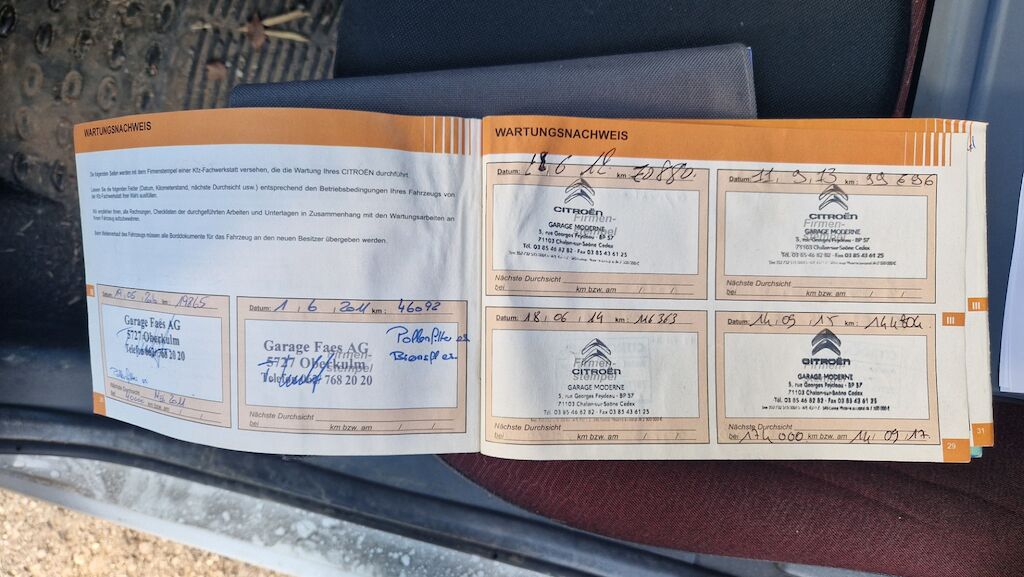 WARTUNGSNACHWEIS
Die folgenden Seiten werden mit dem Firmenstempel einer Kfz-Fachwerkstatt versehen, die die Wartung Ihres CITROËN durchführt.
Lassen Sie die folgenden Felder (Datum, Kilometerstand, nächste Durchsicht usw.) entsprechend den Betriebsbedingungen Ihres Fahrzeugs von
der Kfz-Fachwerkstatt Ihrer Wahl ausfüllen.
Wir empfehlen Ihnen, alle Rechnungen, Checklisten der durchgeführten Arbeiten und Unterlagen in Zusammenhang mit den Wartungsarbeiten an
Ihrem Fahrzeug aufzubewahren.
Beim Weiterverkauf des Fahrzeugs müssen alle Borddokumente für das Fahrzeug an den neuen Besitzer übergeben werden.
Datum: km: 19865
Garage Faes AG
5727 Oberkulm
Telefon 768 20 20
Nächste Durchsicht
bei km bzw. am
Datum: 1 . 6 . 2011 km: 46092
Garage Faes AG
5727 Oberkulm
Telefon 768 20 20
Firmen-
stempel
Pollenfilter
Nächste Durchsicht
bei km bzw. am / /
WARTUNGSNACHWEIS
Datum: 6 12 km: 70880.
CITROËN
Firmen-
stempel
GARAGE MODERNE
5, rue Georges Feydeau - BP 57
71103 Chalon-sur-Saône Cedex
Tél. 03 85 46 82 82 - Fax 03 85 43 61 25
Nächste Durchsicht
bei km bzw. am / /
Datum: 11 . 9 . 13 km: 99 696
CITROËN
Firmen-
stempel
GARAGE MODERNE
5, rue Georges Feydeau - BP 57
71103 Chalon-sur-Saône Cedex
Tél. 03 85 46 82 82 - Fax 03 85 43 61 25
Nächste Durchsicht
bei km bzw. am / /
Datum: 18 . 06 . 14 km: 116363
Firmen-
CITROËN
stempel
GARAGE MODERNE
5, rue Georges Feydeau - BP 57
71103 Chalon-sur-Saône Cedex
Tél. 03 85 46 82 82 - Fax 03 85 43 61 25
Nächste Durchsicht
bei km bzw. am / /
Datum: 14 . 09 . 15 km: 144804.
CITROËN
Firmen-
stempel
GARAGE MODERNE
5, rue Georges Feydeau - BP 57
71103 Chalon-sur-Saône Cedex
Tél. 03 85 46 82 82 - Fax 03 85 43 61 25
Nächste Durchsicht
bei 174 000 km bzw. am 14 . 09 . 17.
III
III
29
31